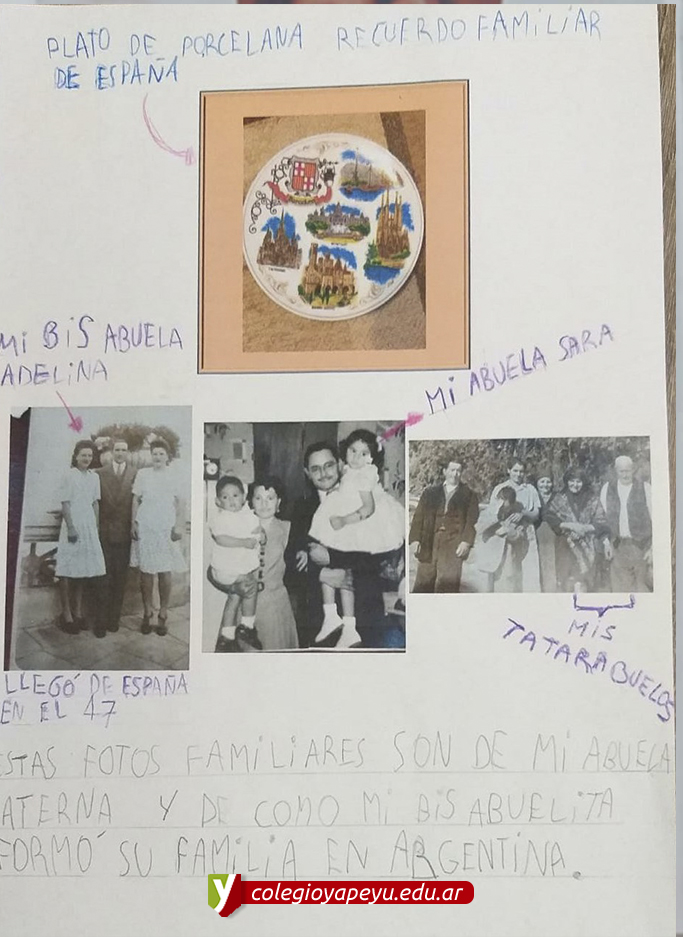 PLATO DE PORCELANA RECUERDO FAMILIAR
DE ESPAÑA
MI BIS ABUELA
ADELINA
MI ABUELA SARA
LLEGÓ DE ESPAÑA
EN EL 47
MIS
TATARABUELOS
ESTAS FOTOS FAMILIARES SON DE MI ABUELA
ATERNA Y DE COMO MI BIS ABUELITA
FORMÓ SU FAMILIA EN ARGENTINA.
colegioyapeyu.edu.ar